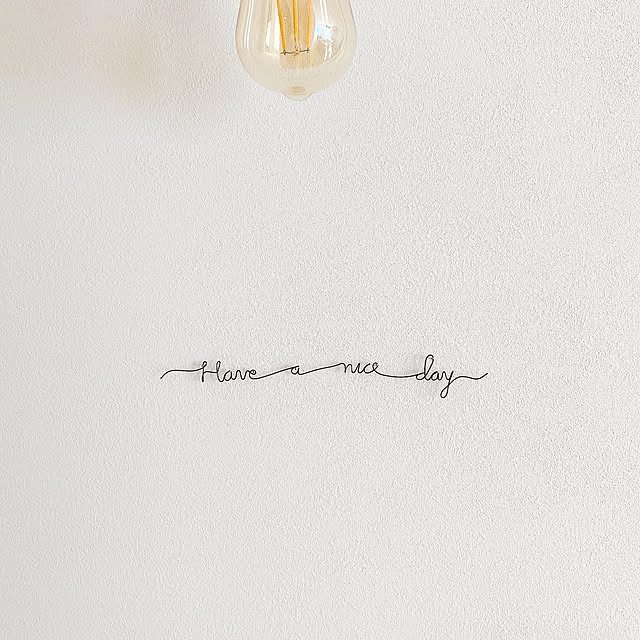 Have a nice day